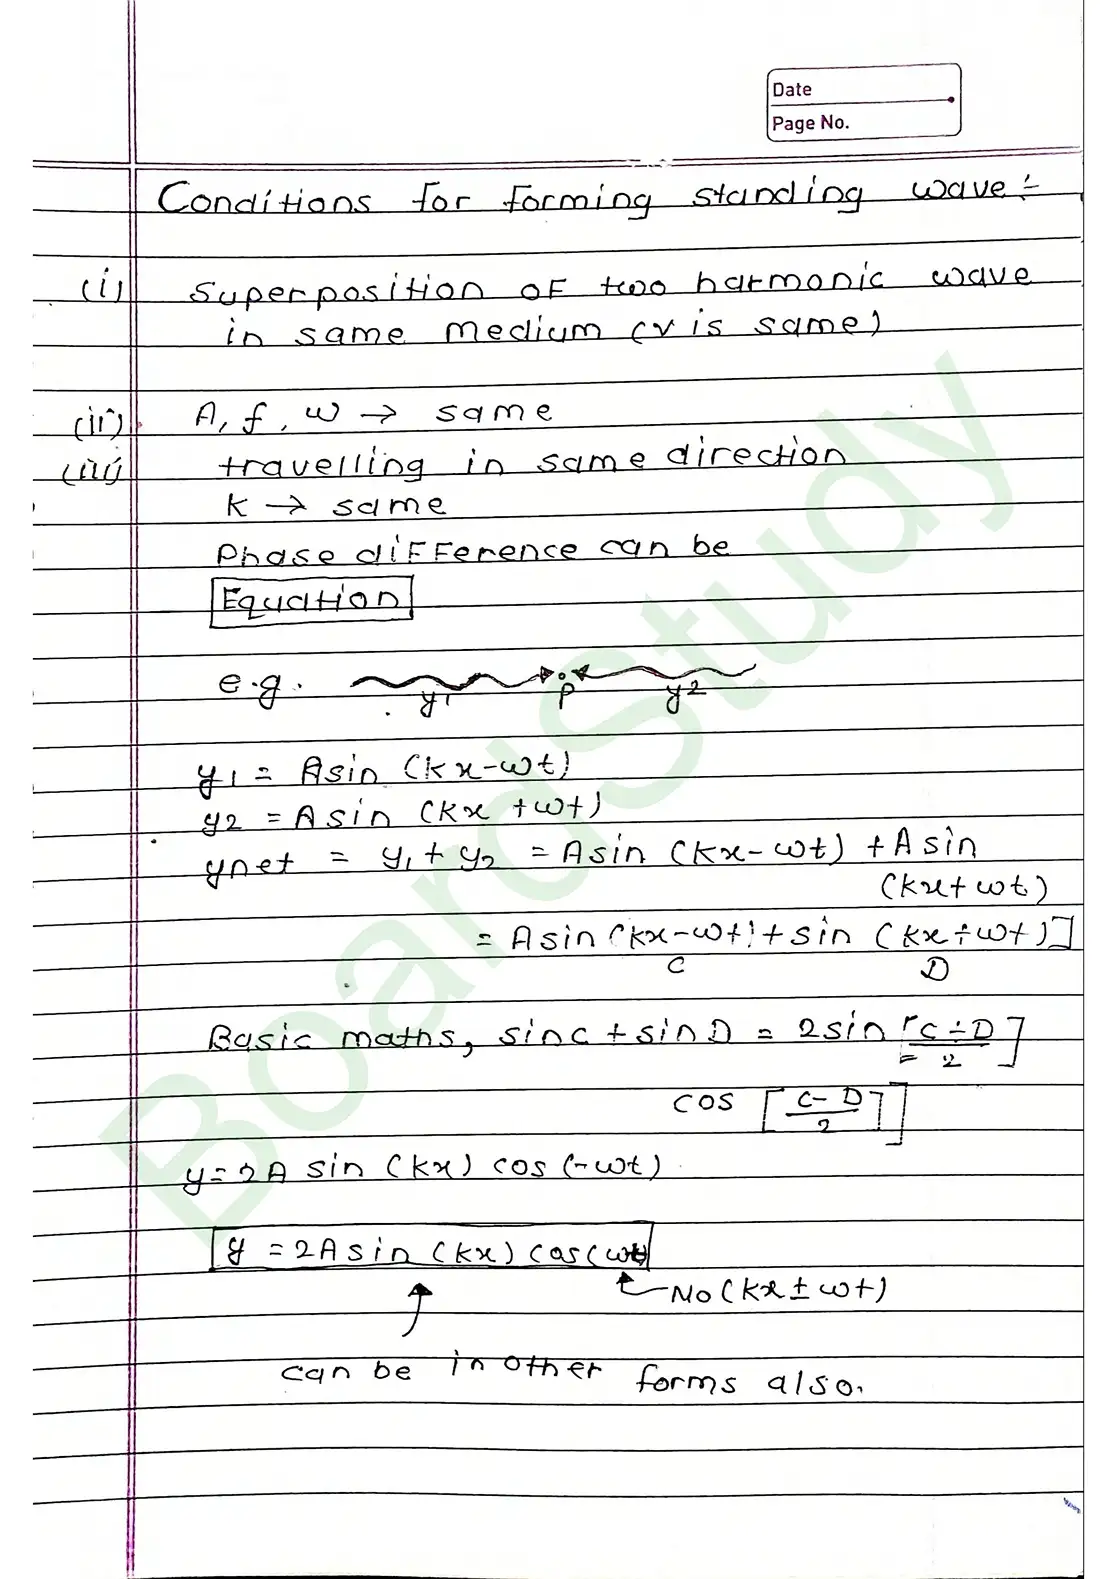 Date
Page No.
Conditions for forming standing wave :-
(i) Superposition of two harmonic wave
in same medium (v is same)
(ii) A, f, ω → same
(iii) travelling in same direction
K → same
Phase difference can be
Equation
e.g. y1 P y2
y1 = A sin (kx - ωt)
y2 = A sin (kx + ωt)
ynet = y1 + y2 = A sin (kx - ωt) + A sin
(kx + ωt)
= A sin (kx - ωt) + sin (kx + ωt)]
C D
Basic maths, sin C + sin D = 2 sin [C + D / 2]
cos [C - D / 2]]
y = 2A sin (kx) cos (-ωt)
y = 2A sin (kx) cos (ωt)
No (kx ± ωt)
can be in other forms also.
BoardStudy